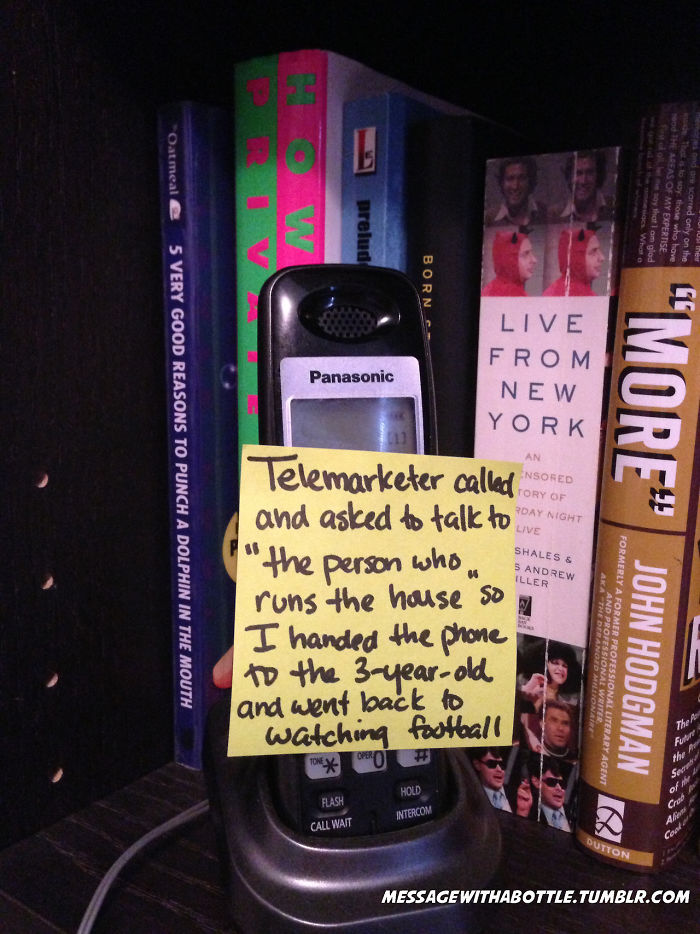 Oatmeal
5 VERY GOOD REASONS TO PUNCH A DOLPHIN IN THE MOUTH
HOW
PRIVATE
prelud
BORN
LIVE
FROM
NEW
YORK
AN
ENSORED
TORY OF
RDAY NIGHT
LIVE
SHALES &
S ANDREW
ILLER
"MORE"
JOHN HODGMAN
FORMERLY A FORMER PROFESSIONAL LITERARY AGENT
AND PROFESSIONAL WRITER
AKA "THE DERANGED MILLIONAIRE"
DUTTON
Panasonic
Telemarketer called
and asked to talk to
"the person who
runs the house" so
I handed the phone
to the 3-year-old
and went back to
watching football
TONE * OPER 0 #
FLASH HOLD
CALL WAIT INTERCOM
MESSAGEWITHABOTTLE.TUMBLR.COM